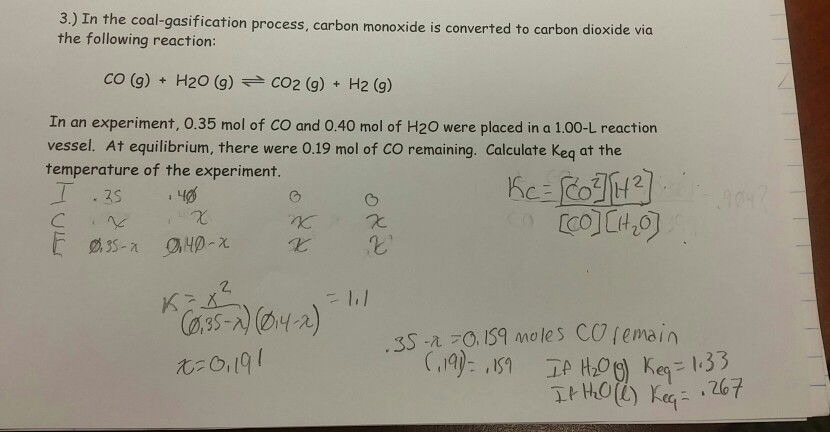 3.) In the coal-gasification process, carbon monoxide is converted to carbon dioxide via
the following reaction:
CO (g) + H2O (g) ⇌ CO2 (g) + H2 (g)
In an experiment, 0.35 mol of CO and 0.40 mol of H2O were placed in a 1.00-L reaction
vessel. At equilibrium, there were 0.19 mol of CO remaining. Calculate Keq at the
temperature of the experiment.
I .35 .40 0 0
C x x x x
E 0.35-x 0.40-x x x
Kc = [CO2][H2]
[CO][H2O]
K = x2 = 1.1
(0.35-x)(0.4-x)
x = 0.191
.35 - x = 0.159 moles CO remain
(.191) = .159
If H2O(g) Keq = 1.33
If H2O(l) Keq = .267